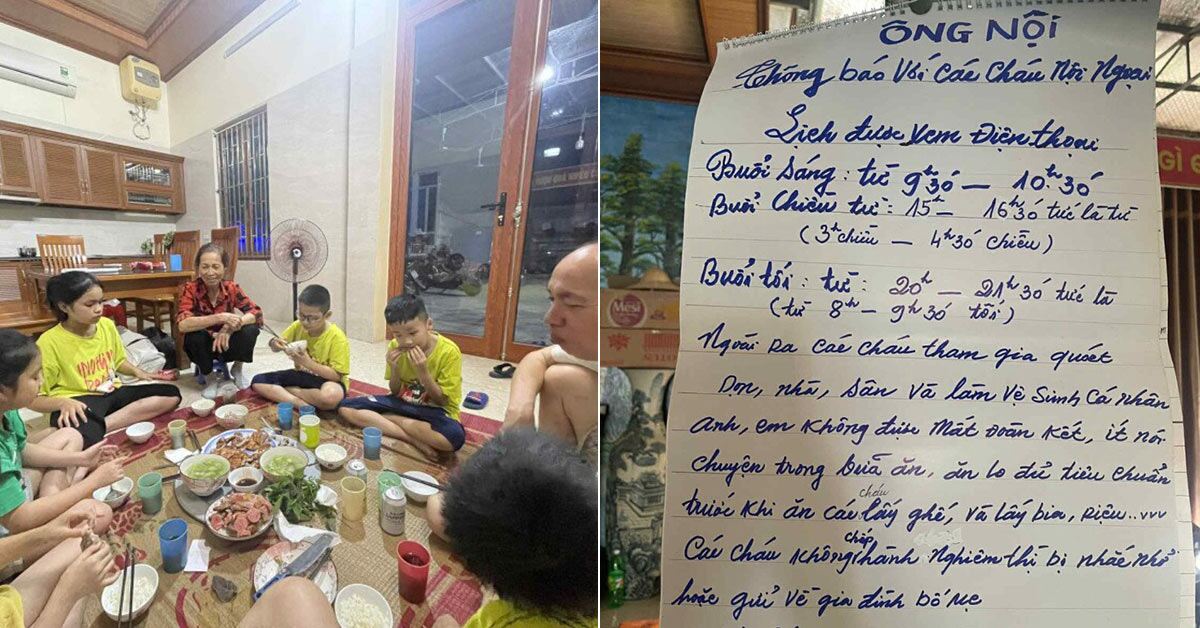 ÔNG NỘI
Thông báo Với Các Cháu Nội Ngoại
Lịch được xem Điện thoại
Buổi Sáng: từ 9h30 — 10h30
Buổi Chiều từ: 15h — 16h30 tức là từ
(3h chiều — 4h30 chiều)
Buổi tối: từ: 20h — 21h30 tức là
(từ 8h — 9h30 tối)
Ngoài ra các cháu tham gia quét
Dọn, nhà, sân và làm vệ sinh cá nhân
Anh, em không được mất đoàn kết, ít nói
chuyện trong bữa ăn, ăn lo đủ tiêu chuẩn
trước khi ăn các cháu lấy ghế, và lấy bia, rượu...vvv
Các cháu không chấp hành nghiêm thì bị nhắc nhở
hoặc gửi về gia đình bố mẹ